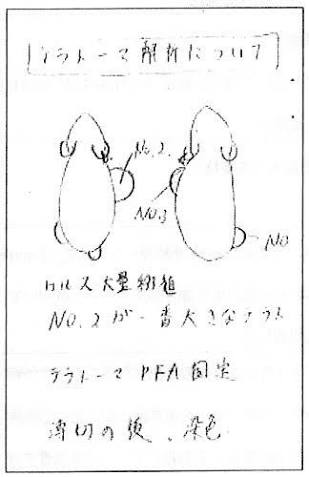 テラトーマ解析について
No.2.
No.3
No
大量移植
No.2が一番大きなテラト
テラトーマ PFA 固定
薄切の後、染色